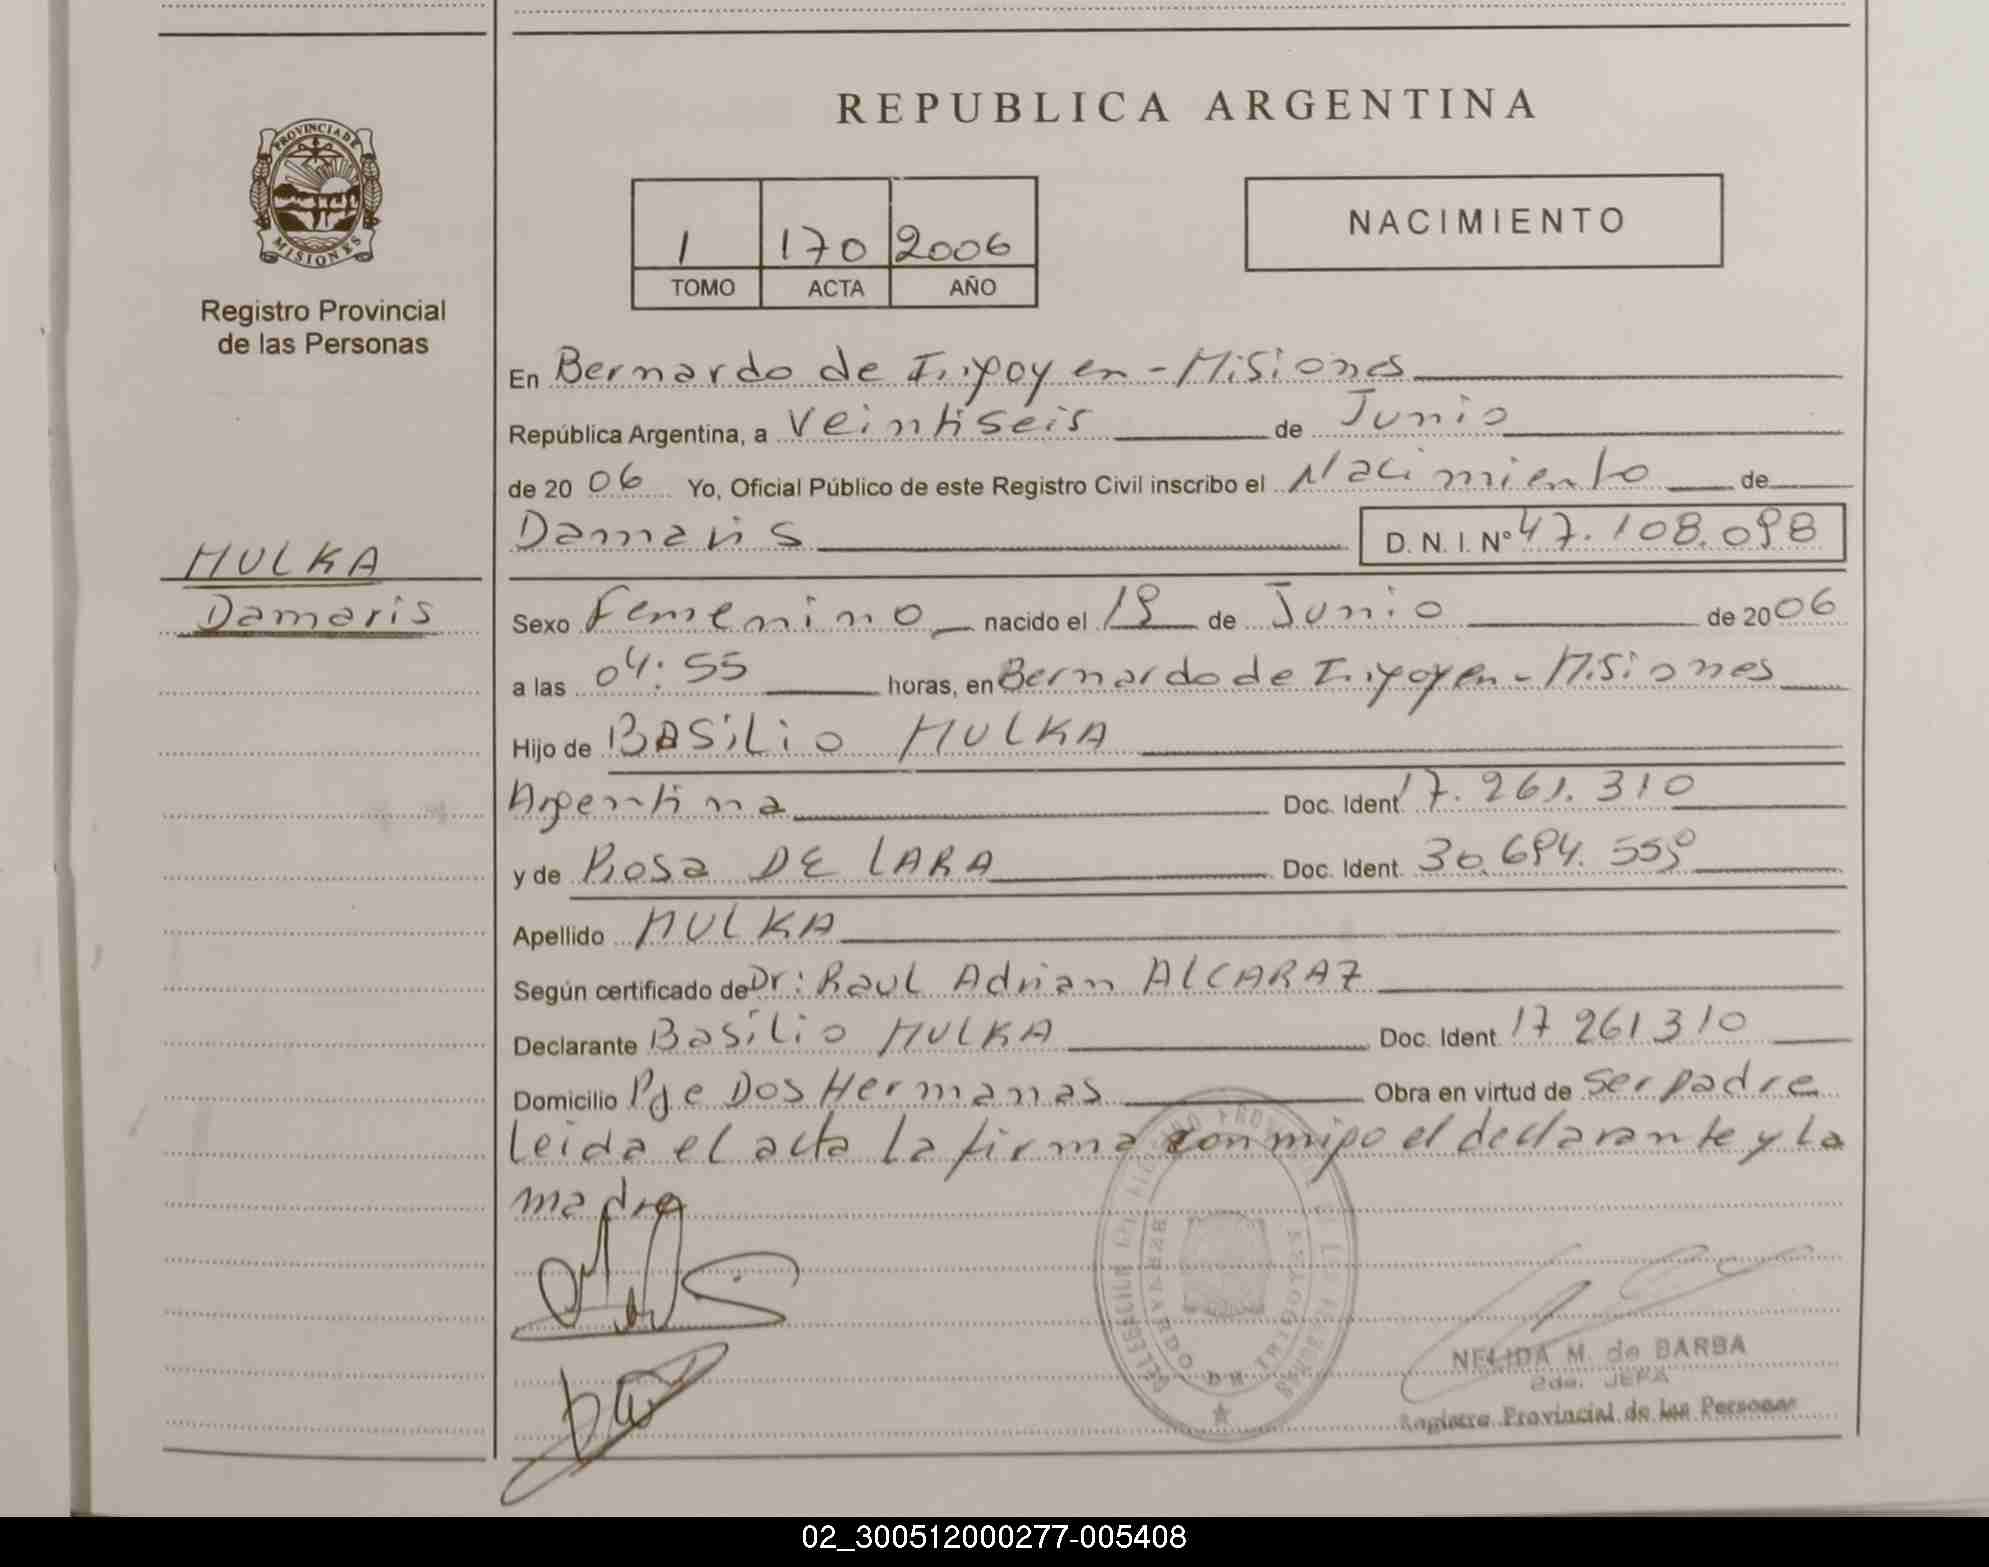 REPUBLICA ARGENTINA
PROVINCIA DE
MISIONES
Registro Provincial
de las Personas
1 170 2006
TOMO ACTA AÑO
NACIMIENTO
En Bernardo de Irigoyen - Misiones
República Argentina, a Veintiseis de Junio
de 2006 Yo, Oficial Público de este Registro Civil inscribo el Nacimiento de
Damaris D. N. I. Nº 47.108.098
MULKA
Damaris
Sexo Femenino nacido el 19 de Junio de 2006
a las 04:55 horas, en Bernardo de Irigoyen - Misiones
Hijo de BASiLio MULKA
Argentina Doc. Ident. 17.261.310
y de Rosa DE LARA Doc. Ident. 30.694.559
Apellido MULKA
Según certificado de Dr: Raul Adrian ALCARAZ
Declarante Basilio MULKA Doc. Ident. 17 261 310
Domicilio Pje Dos Hermanas Obra en virtud de ser padre
Leida el acta la firma conmigo el declarante y la
madre
NELIDA M. de BARBA
2da. JEFA
Registro Provincial de las Personas
02_300512000277-005408